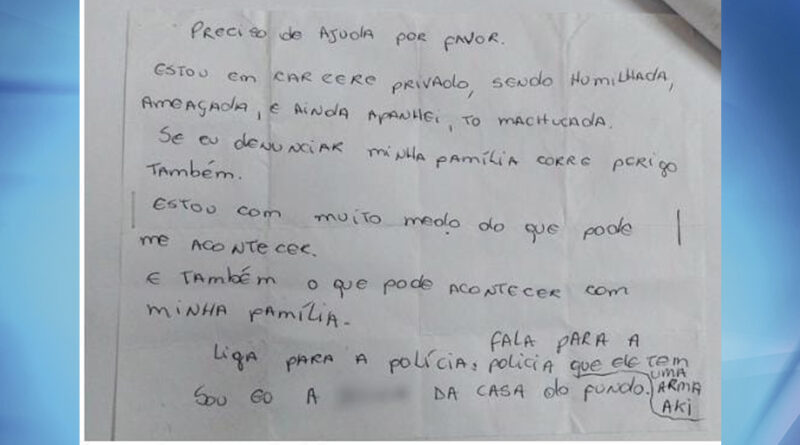 PRECISO de AJUDA POR FAVOR.
ESTOU em CARCERE PRIVADO, SENDO HUMILHADA,
AMEAÇADA, E AINDA APANHEI, TO MACHUCADA.
Se eu denunciar minha família CORRE perigo
Também.
ESTOU com muito medo do que pode
me ACONTECER.
E Também o que pode ACONTECER com
MINHA FAMÍLIA.
FALA PARA A
Liga PARA A POLÍCIA, POLICIA que ele tem
UMA
SOU EU A DA CASA do FUNDO. ARMA
AKI